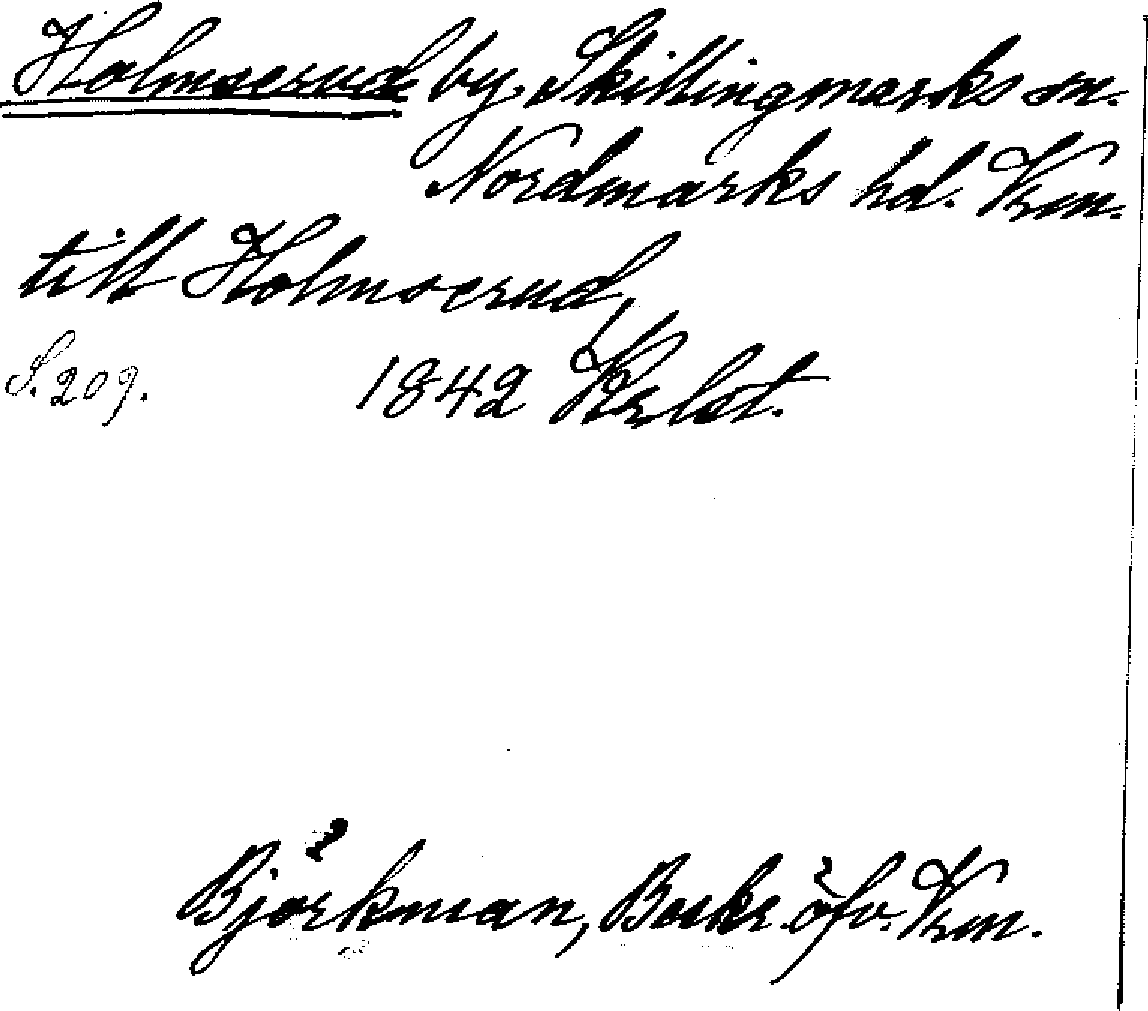 Holmserud by, Skillingmarks sn.
Nordmarks hd. Vrm.
till Holmserud,
S. 209. 1842
Björkman, Beskr. öfv. Vrm.